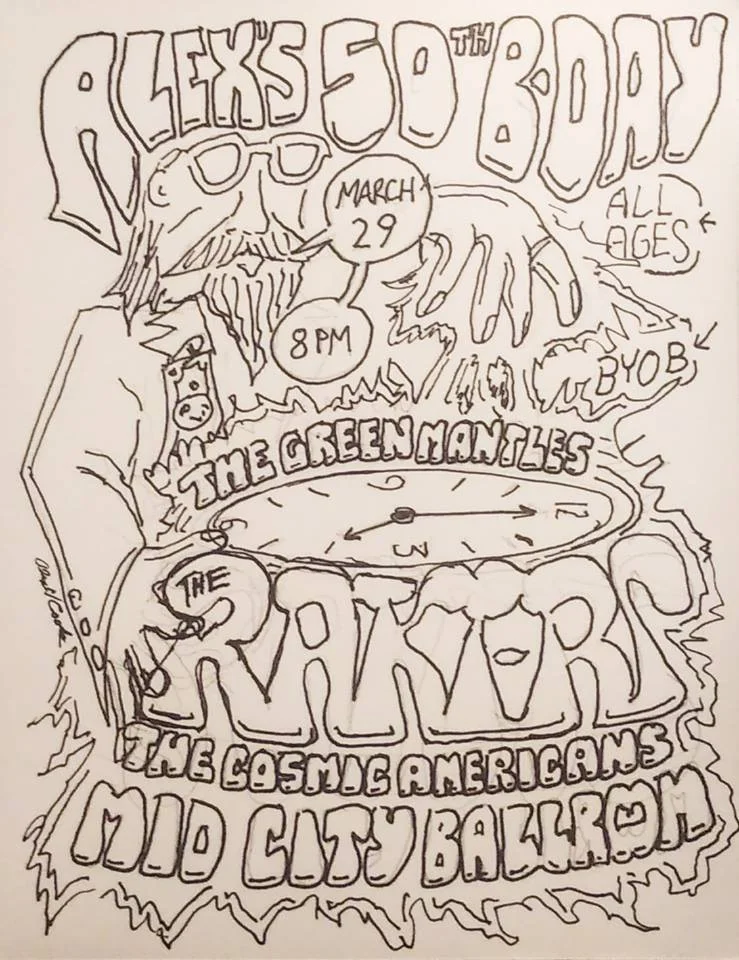 ALEX'S 50TH B-DAY
MARCH
29
ALL
AGES
8 PM
BYOB
THE GREEN MANTLES
9
12
3
6
THE
RAKTORS
THE COSMIC AMERICANS
MID CITY BALLROOM